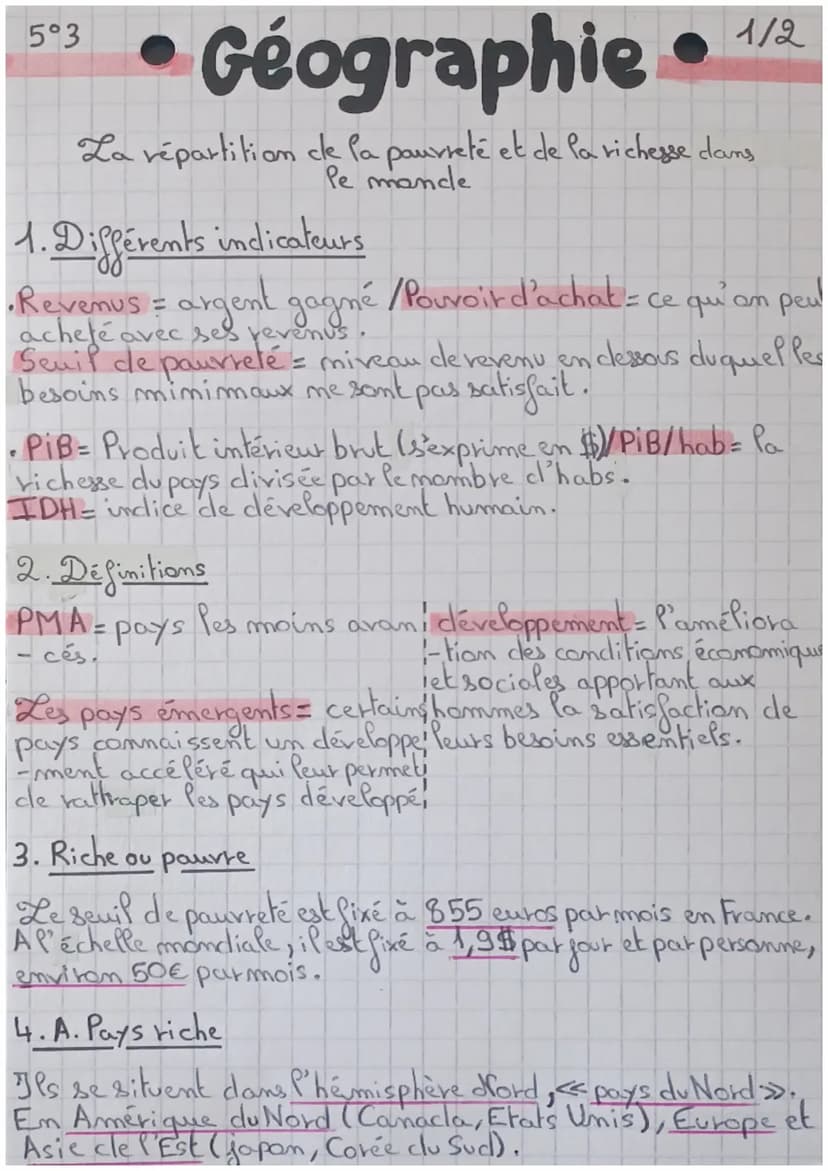 5°3
1/2
• Géographie •
La répartition de la pauvreté et de la richesse dans
le monde
1. Différents indicateurs
• Revenus = argent gagné / Pouvoir d'achat = ce qu'on peut
acheté avec ses revenus.
Seuil de pauvreté = niveau de revenu en dessous duquel les
besoins minimaux ne sont pas satisfait.
• PiB = Produit intérieur brut (s'exprime en $) / PiB/hab = la
richesse du pays divisée par le nombre d'habs.
IDH = indice de développement humain.
2. Définitions
PMA = pays les moins avan
- cés.
Les pays émergents = certains
pays connaissent un développe
-ment accéléré qui leur permet
de rattraper les pays développé
développement = l'améliora
-tion des conditions économique
et sociales apportant aux
hommes la satisfaction de
leurs besoins essentiels.
3. Riche ou pauvre
Le seuil de pauvreté est fixé à 855 euros par mois en France.
A l'échelle mondiale, il est fixé à 1,9$ par jour et par personne,
environ 50€ par mois.
4. A. Pays riche
Ils se situent dans l'hémisphère Nord, « pays du Nord ».
En Amérique du Nord (Canada, Etats Unis), Europe et
Asie de l'Est (japon, Corée du Sud).